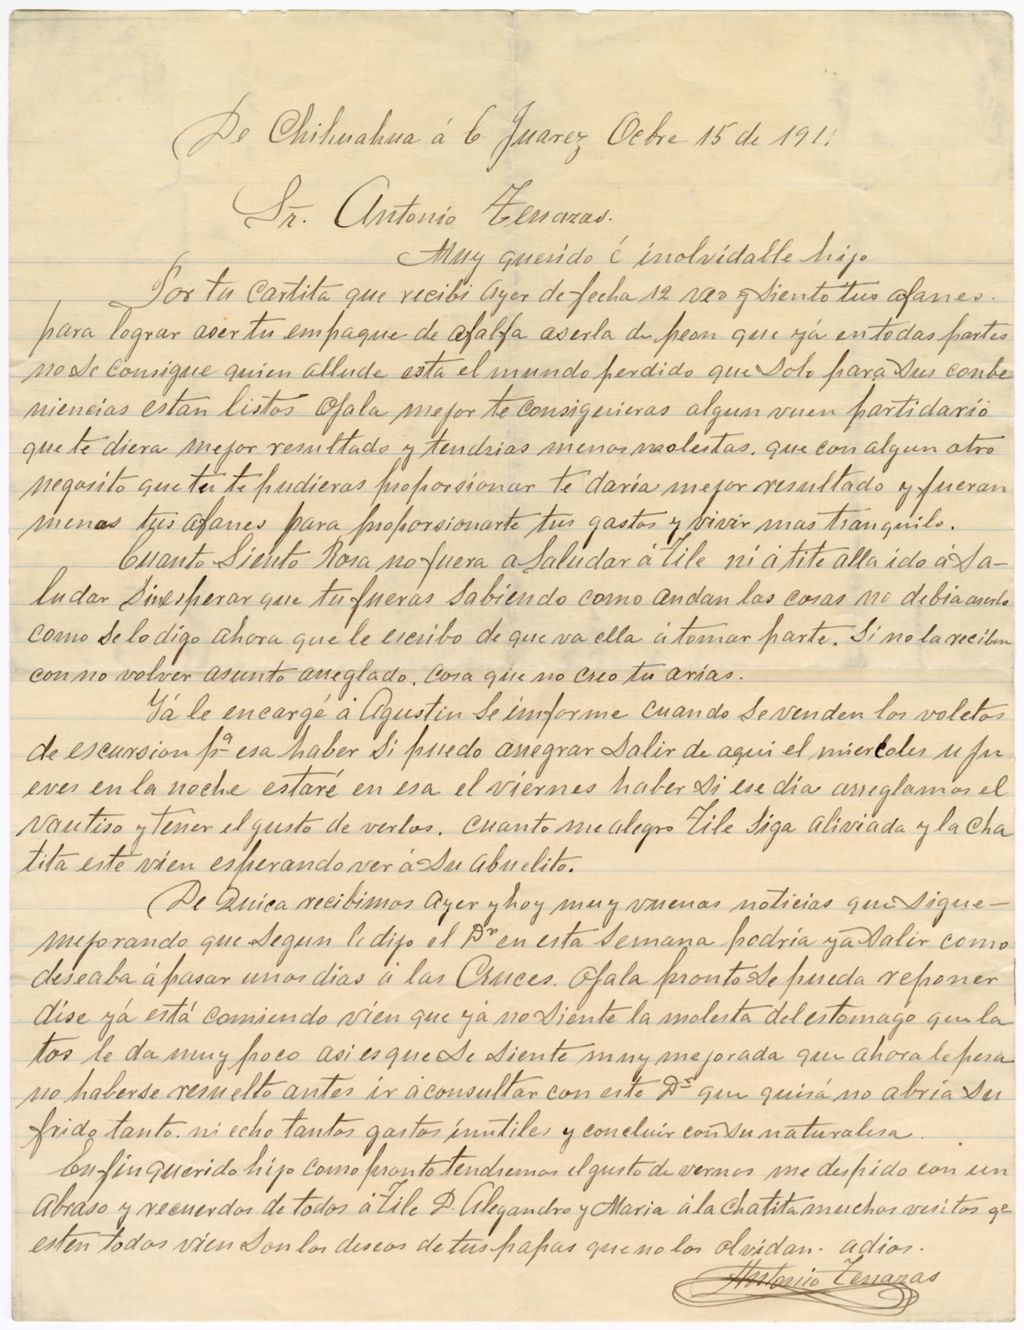 De Chihuahua á C. Juarez Ocbre 15 de 1911
Sr. Antonio Terrazas.
Muy querido é inolvidable hijo
Por tu cartita que recibi ayer de fecha 12 veo y siento tus afanes
para lograr aser tu empaque de alfalfa aserla de peon que yá en todas partes
no se consigue quien allude esta el mundo perdido que solo para sus conbe
niencias estan listos Ojala mejor te consigieras algun vuen partidario
que te diera mejor resultado y tendrias menos molestas. que con algun otro
negosito que tu te pudieras proporsionar te daria mejor resultado y fueran
menos tus afanes para proporsionarte tus gastos y vivir mas tranquilo.
Cuanto siento Rosa no fuera a saludar á Tile ni á tite alla ido á sa-
ludar sin esperar que tu fueras sabiendo como andan las cosas no debia aserlo
como se lo digo ahora que le escribo de que va ella á tomar parte. Si no la reciben
con no volver asunto arreglado. cosa que no creo tu arias.
Yá le encargé á Agustin se imforme cuando se venden los voletos
de escursion pa esa haber si puedo arregrar salir de aqui el miercoles u ju
eves en la noche estaré en esa el viernes haber si ese dia arreglamos el
vautiso y tener el gusto de verlos. cuanto me alegro Tile siga aliviada y la cha
tita esté vien esperando ver á su abuelito.
De Quica recibimos ayer y hoy muy vuenas noticias que sigue-
mejorando que segun le dijo el Dr en esta semana podria yá salir como
deseaba á pasar unos dias á las Cruces. Ojala pronto se pueda reponer
dise yá está comiendo vien que yá no siente la molesta del estomago que la
tos le da muy poco asi es que se siente muy mejorada que ahora le pesa
no haberse resuelto antes ir á consultar con este Dr que quisá no abria su
frido tanto. ni echo tantos gastos inutiles y concluir con su naturalesa.
En fin querido hijo como pronto tendremos el gusto de vernos me despido con un
abraso y recuerdos de todos á Tile D. Alegandro y Maria á la chatita muchos vesitos qe
esten todos vien son los deseos de tus papas que no los olvidan. adios.
Antonio Terrazas